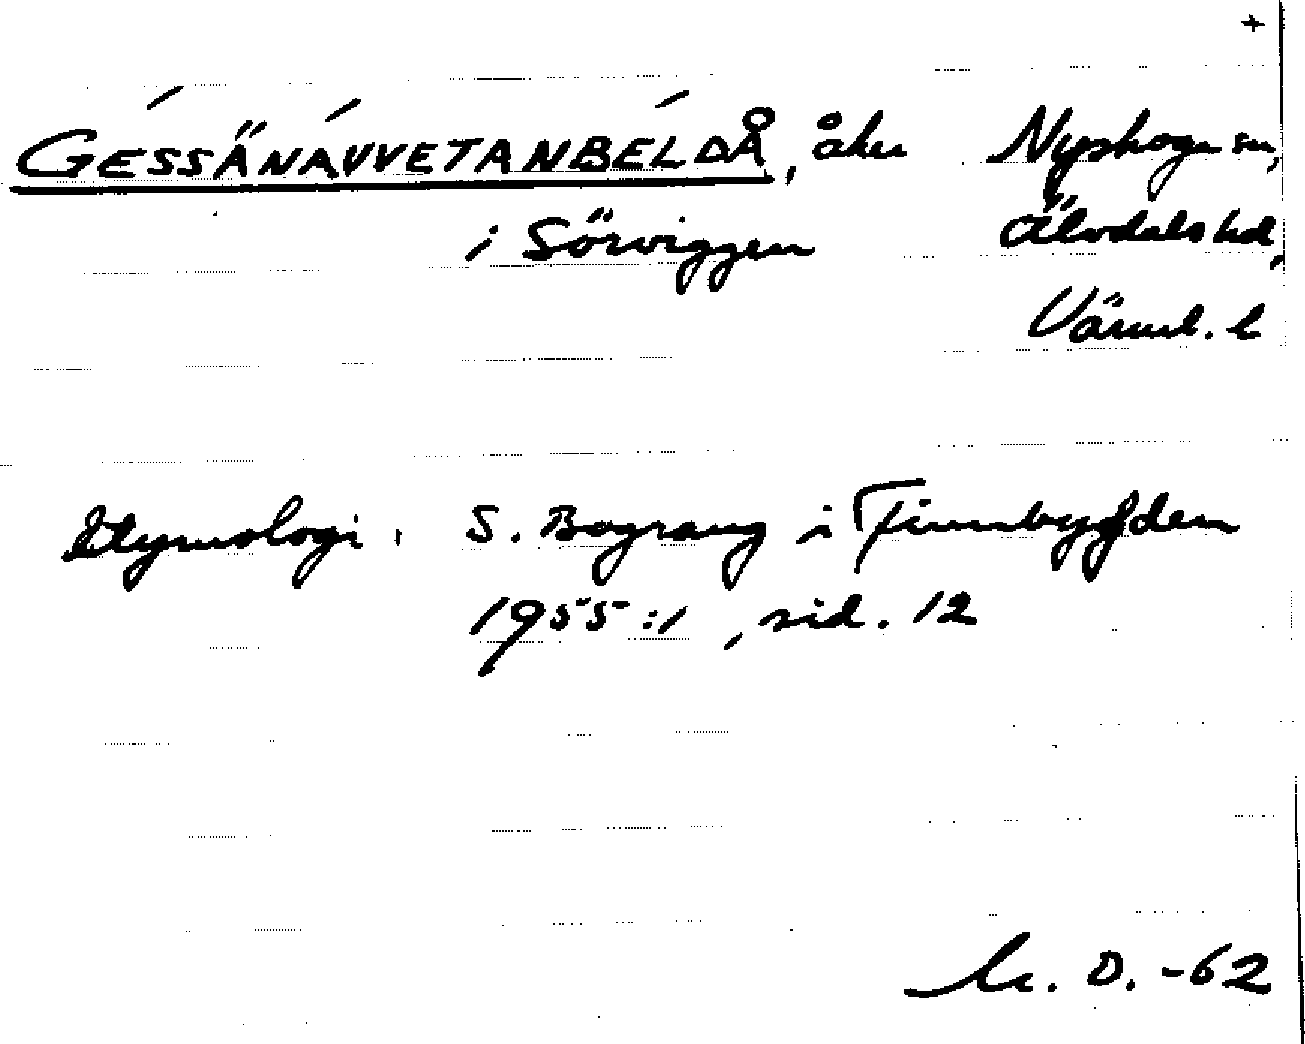 +
GESSÄNAVVETANBELDÅ, åker Nyskoga sn,
i Sörviggen Älvdals hd,
Värml. l
Etymologi: S. Bograng i Finnbygden
1955:1, sid. 12
D. -62